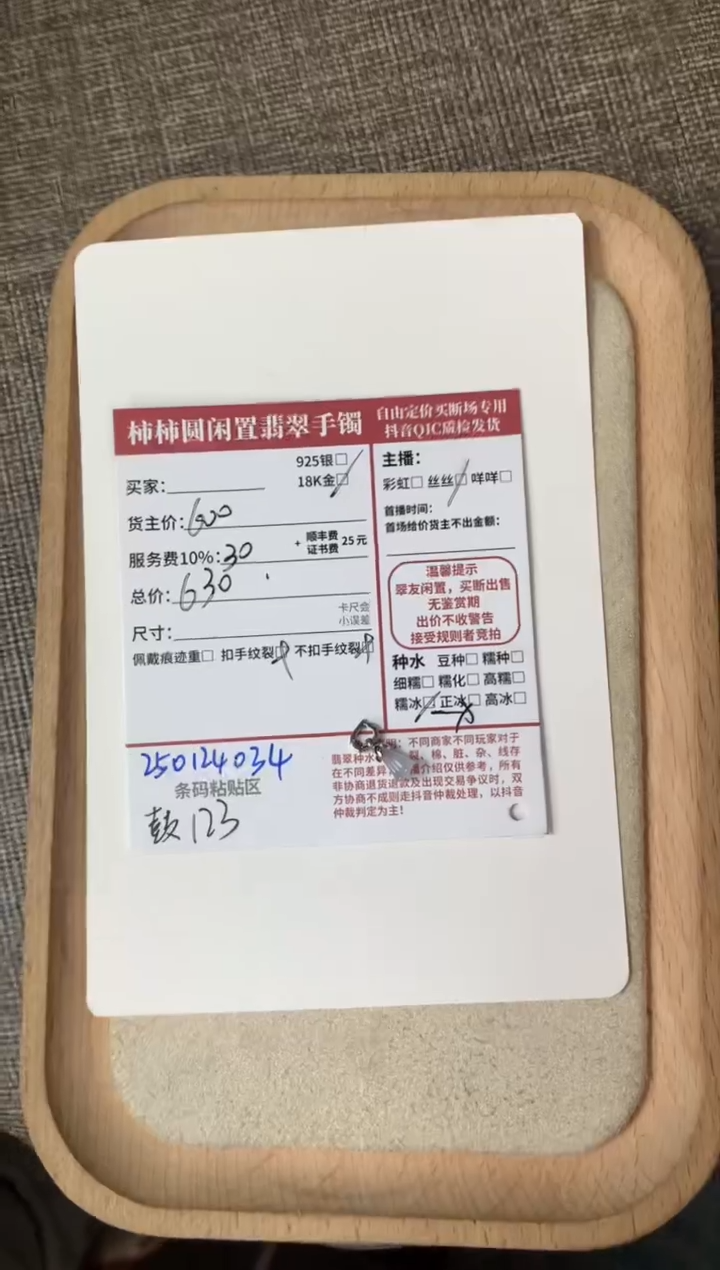 柿柿圆闲置翡翠手镯
自由定价买断场专用
抖音QIC质检发货
925银□
买家:
18K金□
货主价:600
服务费10%:30
+ 顺丰费 证书费 25元
总价:630
尺寸:
卡尺会
小误差
佩戴痕迹重□ 扣手纹裂□ 不扣手纹裂□
主播:
彩虹□ 丝丝□ 咩咩□
首播时间:
首场给价货主不出金额:
温馨提示
翠友闲置,买断出售
无鉴赏期
出价不收警告
接受规则者竞拍
种水 豆种□ 糯种□
细糯□ 糯化□ 高糯□
糯冰□ 正冰□ 高冰□
250124034
条码粘贴区
鼓123
明:不同商家不同玩家对于
翡翠种水 裂、棉、脏、杂、线存
在不同差异 播介绍仅供参考,所有
非协商退货退款及出现交易争议时,双
方协商不成则走抖音仲裁处理,以抖音
仲裁判定为主!